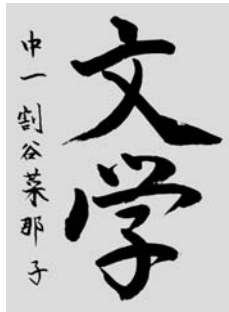 文学
中一 割谷菜那子